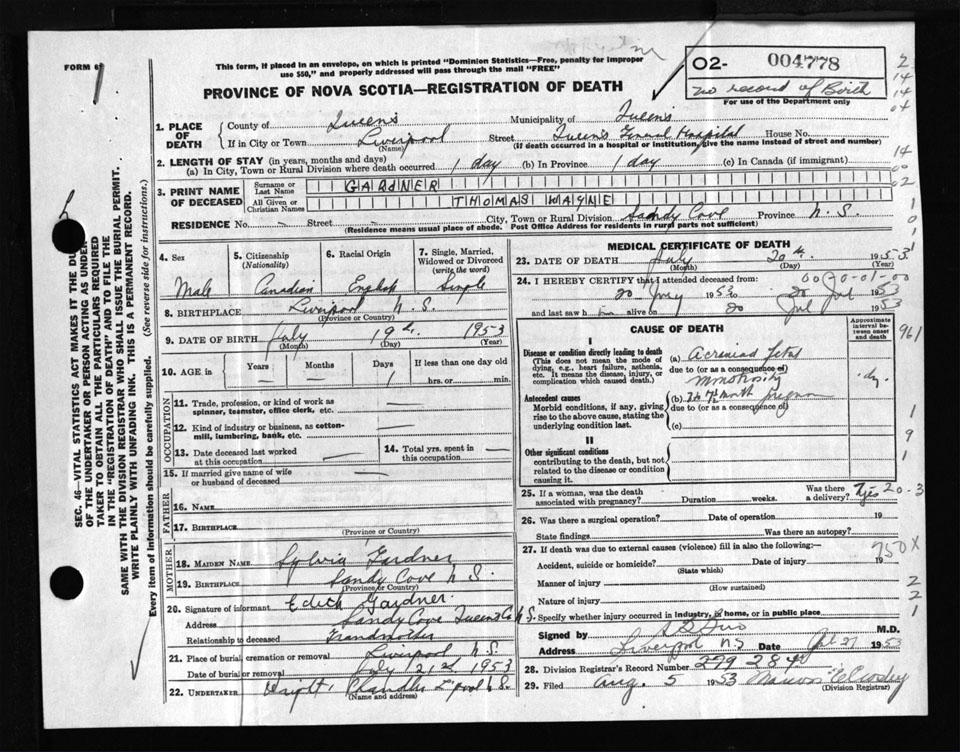 FORM 6
This form, if placed in an envelope, on which is printed "Dominion Statistics—Free, penalty for improper
use $50," and properly addressed will pass through the mail "FREE"
PROVINCE OF NOVA SCOTIA—REGISTRATION OF DEATH
O2- 004778
no record of Birth
For use of the Department only
2
14
14
04
14
00
02
1. PLACE OF DEATH
County of Queens Municipality of Queens
If in City or Town Liverpool Street Queens General Hospital House No.
(Name) (If death occurred in a hospital or institution, give the name instead of street and number)
2. LENGTH OF STAY (in years, months and days)
(a) In City, Town or Rural Division where death occurred 1 day (b) In Province 1 day (c) In Canada (if immigrant)
3. PRINT NAME OF DECEASED
Surname or Last Name GARDNER
All Given or Christian Names THOMAS WAYNE
RESIDENCE No. — Street — City, Town or Rural Division Sandy Cove Province N.S.
(Residence means usual place of abode. Post Office Address for residents in rural parts not sufficient)
4. Sex
Male
5. Citizenship
(Nationality)
Canadian
6. Racial Origin
English
7. Single, Married, Widowed or Divorced
(write the word)
Single
8. BIRTHPLACE Liverpool N.S.
(Province or Country)
9. DATE OF BIRTH July 19th 1953
(Month) (Day) (Year)
10. AGE in
Years —
Months —
Days 1
If less than one day old
hrs. or min.
OCCUPATION
11. Trade, profession, or kind of work as
spinner, teamster, office clerk, etc. —
12. Kind of industry or business, as cotton-
mill, lumbering, bank, etc. —
13. Date deceased last worked
at this occupation —
14. Total yrs. spent in
this occupation —
15. If married give name of wife
or husband of deceased —
FATHER
16. NAME
17. BIRTHPLACE
(Province or Country)
MOTHER
18. MAIDEN NAME Sylvia Gardner
19. BIRTHPLACE Sandy Cove N.S.
(Province or Country)
20. Signature of informant Edith Gardner
Address Sandy Cove Queens Co N.S.
Relationship to deceased Grandmother
21. Place of burial, cremation or removal Liverpool N.S.
Date of burial or removal July 21st 1953
22. UNDERTAKER Chandler L'pool N.S.
(Name and address)
MEDICAL CERTIFICATE OF DEATH
23. DATE OF DEATH July 20th 1953
(Month) (Day) (Year)
24. I HEREBY CERTIFY that I attended deceased from:
00-20-01-00
20 July 1953 to 20 Jul 1953
and last saw h im alive on 20 Jul 1953
CAUSE OF DEATH
Approximate interval between onset and death
961
I
Disease or condition directly leading to death
(This does not mean the mode of dying, e.g., heart failure, asthenia, etc. It means the disease, injury, or complication which caused death.)
(a) Acranial fetal
due to (or as a consequence of)
monstrosity
Antecedent causes
Morbid conditions, if any, giving rise to the above cause, stating the underlying condition last.
(b) month
due to (or as a consequence of)
(c)
II
Other significant conditions
contributing to the death, but not related to the disease or condition causing it.
1
9
1
25. If a woman, was the death
associated with pregnancy? Duration weeks. Was there a delivery? Yes 20-3
26. Was there a surgical operation? Date of operation 19
State findings Was there an autopsy?
27. If death was due to external causes (violence) fill in also the following:—
750X
Accident, suicide or homicide? Date of injury 19
(State which)
Manner of injury
(How sustained)
2
Nature of injury
2
Specify whether injury occurred in industry, in home, or in public place
1
Signed by M.D.
Address Liverpool NS Date Jul 27 1953
28. Division Registrar's Record Number 279 284
29. Filed Aug. 5 1953
(Division Registrar)
SEC. 46—VITAL STATISTICS ACT MAKES IT THE DUTY
OF THE UNDERTAKER OR PERSON ACTING AS UNDER-
TAKER TO OBTAIN ALL THE PARTICULARS REQUIRED
IN THE "REGISTRATION OF DEATH" AND TO FILE THE
SAME WITH THE DIVISION REGISTRAR WHO SHALL ISSUE THE BURIAL PERMIT.
WRITE PLAINLY WITH UNFADING INK. THIS IS A PERMANENT RECORD.
Every item of information should be carefully supplied. (See reverse side for instructions.)